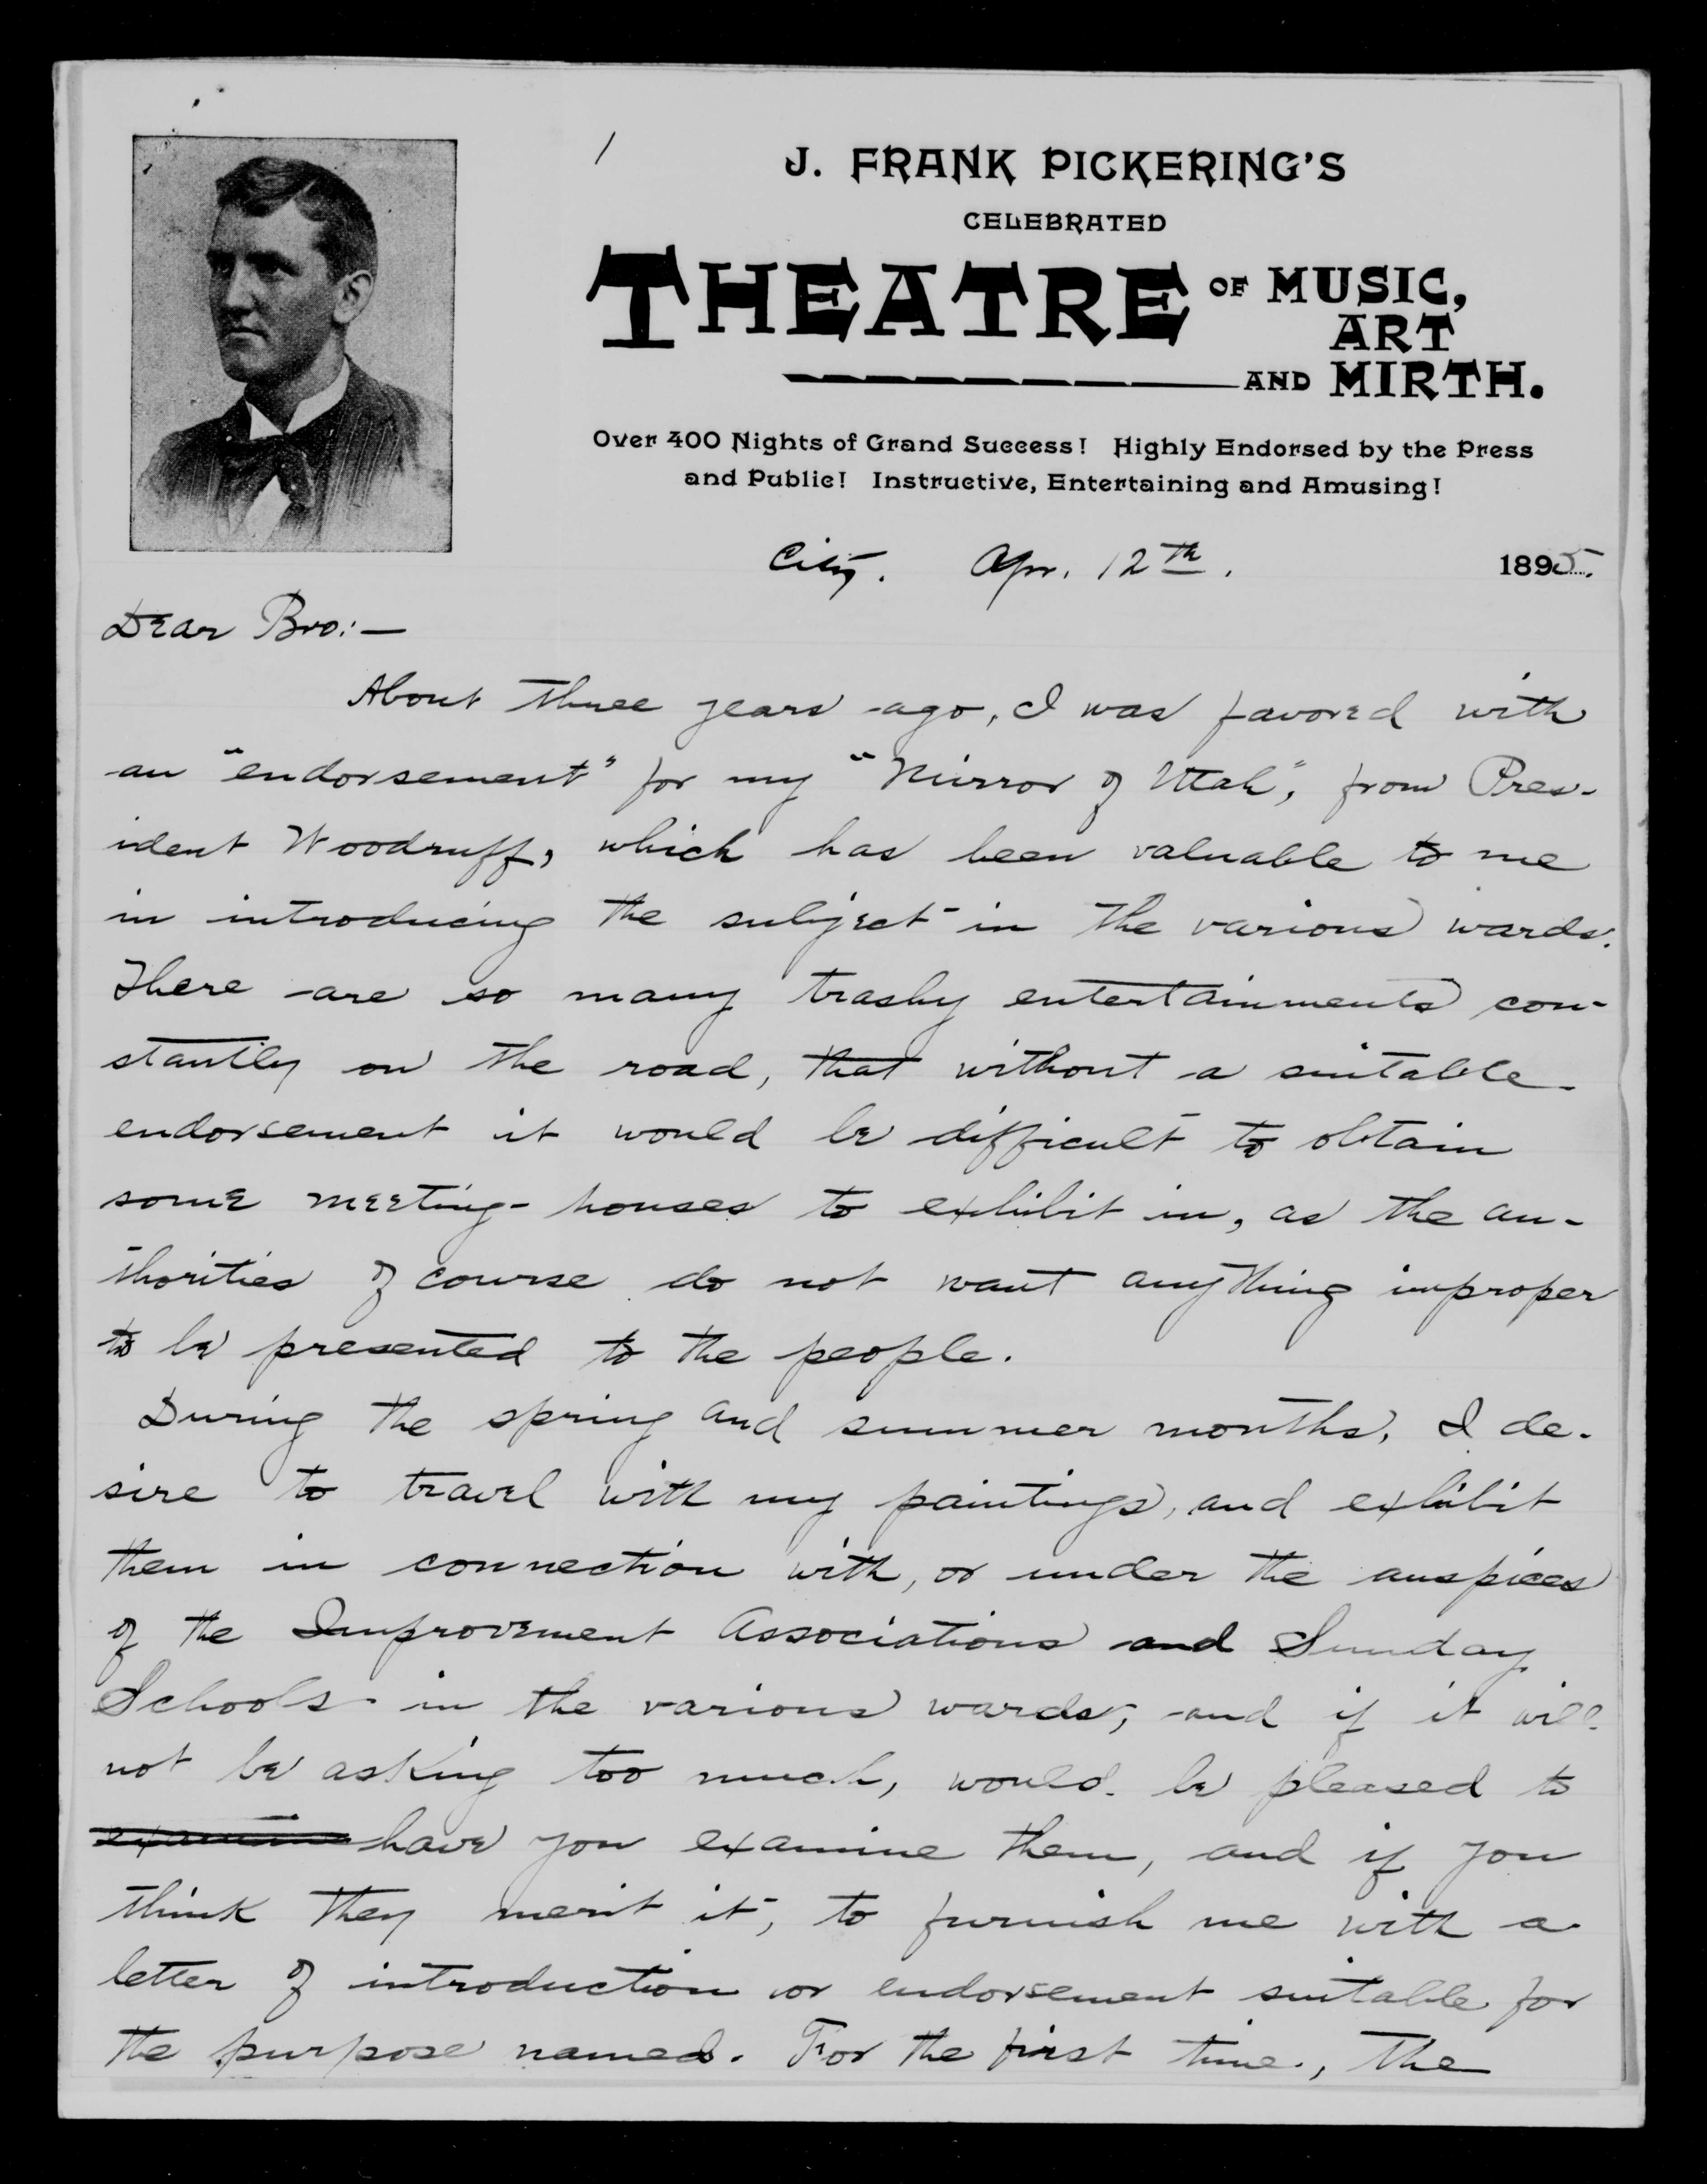 /
J. FRANK PICKERING'S
CELEBRATED
THEATRE OF MUSIC,
ART
AND MIRTH.
Over 400 Nights of Grand Success! Highly Endorsed by the Press
and Public! Instructive, Entertaining and Amusing!
City. Apr. 12th. 1895.
Dear Bro:—
About three years ago, I was favored with
an "endorsement" for my "Mirror of Utah", from Pres-
ident Woodruff, which has been valuable to me
in introducing the subject in the various wards.
There are so many trashy entertainments con-
stantly on the road, that without a suitable
endorsement it would be difficult to obtain
some meeting-houses to exhibit in, as the au-
thorities of course do not want anything improper
to be presented to the people.
During the spring and summer months, I de-
sire to travel with my paintings, and exhibit
them in connection with, or under the auspices
of the Improvement Associations and Sunday
Schools in the various wards; and if it will
not be asking too much, would be pleased to
examine have you examine them, and if you
think they merit it, to furnish me with a
letter of introduction or endorsement suitable for
the purpose named. For the first time, the